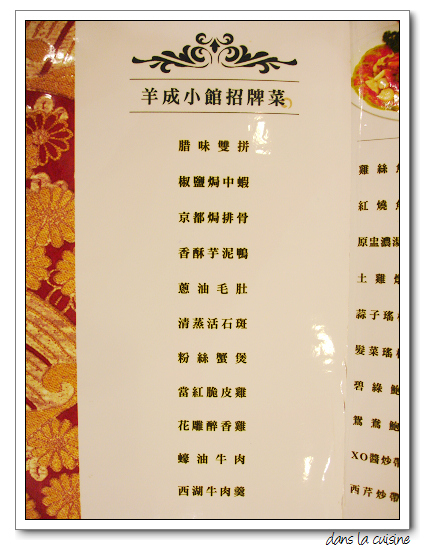 羊成小館招牌菜
腊味雙拼
椒鹽焗中蝦
京都焗排骨
香酥芋泥鴨
蔥油毛肚
清蒸活石斑
粉絲蟹煲
當紅脆皮雞
花雕醉香雞
蠔油牛肉
西湖牛肉羹
雞絲
紅燒
原盅濃湯
土雞
蒜子瑤
髮菜瑤
碧綠鮑
鴛鴦鮑
XO醬炒帶
西芹炒帶
dans la cuisine